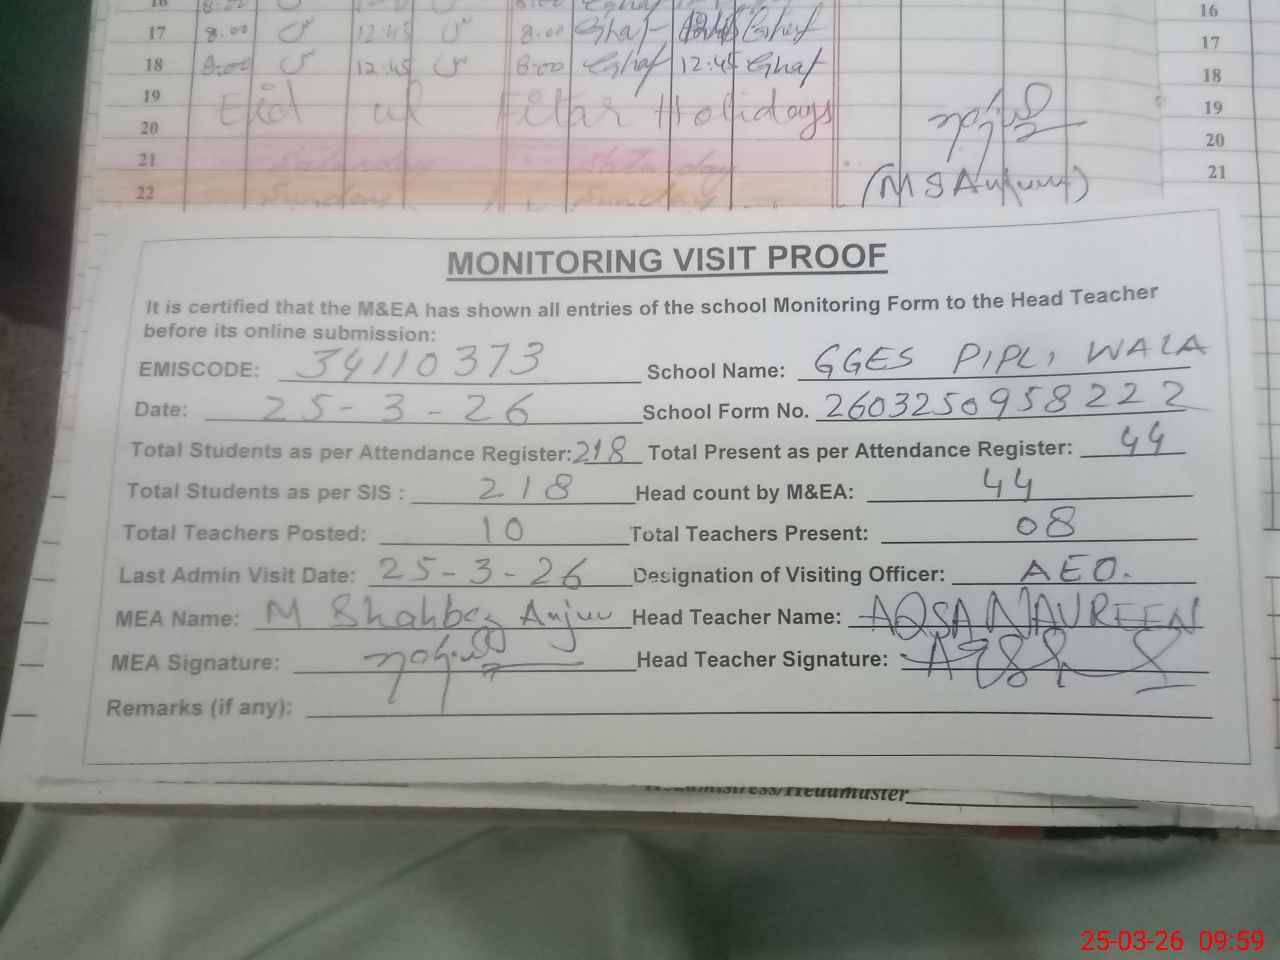 16 8.00 8.00 16
17 8.00 12:45 8.00 Ghaf Ghaf 17
18 8:00 12:45 8:00 Ghaf 12:45 Ghaf 18
19 Eid ul Fitar Holidays 19
20 20
21 Saturday Saturday 21
22 Sunday Sunday
(M S Anjum)
MONITORING VISIT PROOF
It is certified that the M&EA has shown all entries of the school Monitoring Form to the Head Teacher
before its online submission:
EMISCODE: 34110373 School Name: GGES PIPLI WALA
Date: 25-3-26 School Form No. 2603250958222
Total Students as per Attendance Register: 218 Total Present as per Attendance Register: 44
Total Students as per SIS : 218 Head count by M&EA: 44
Total Teachers Posted: 10 Total Teachers Present: 08
Last Admin Visit Date: 25-3-26 Designation of Visiting Officer: AEO.
MEA Name: M Shahbaz Anjum Head Teacher Name: AQSA NAUREEN
MEA Signature: Head Teacher Signature:
Remarks (if any):
Headmistress/Headmaster
25-03-26 09:59